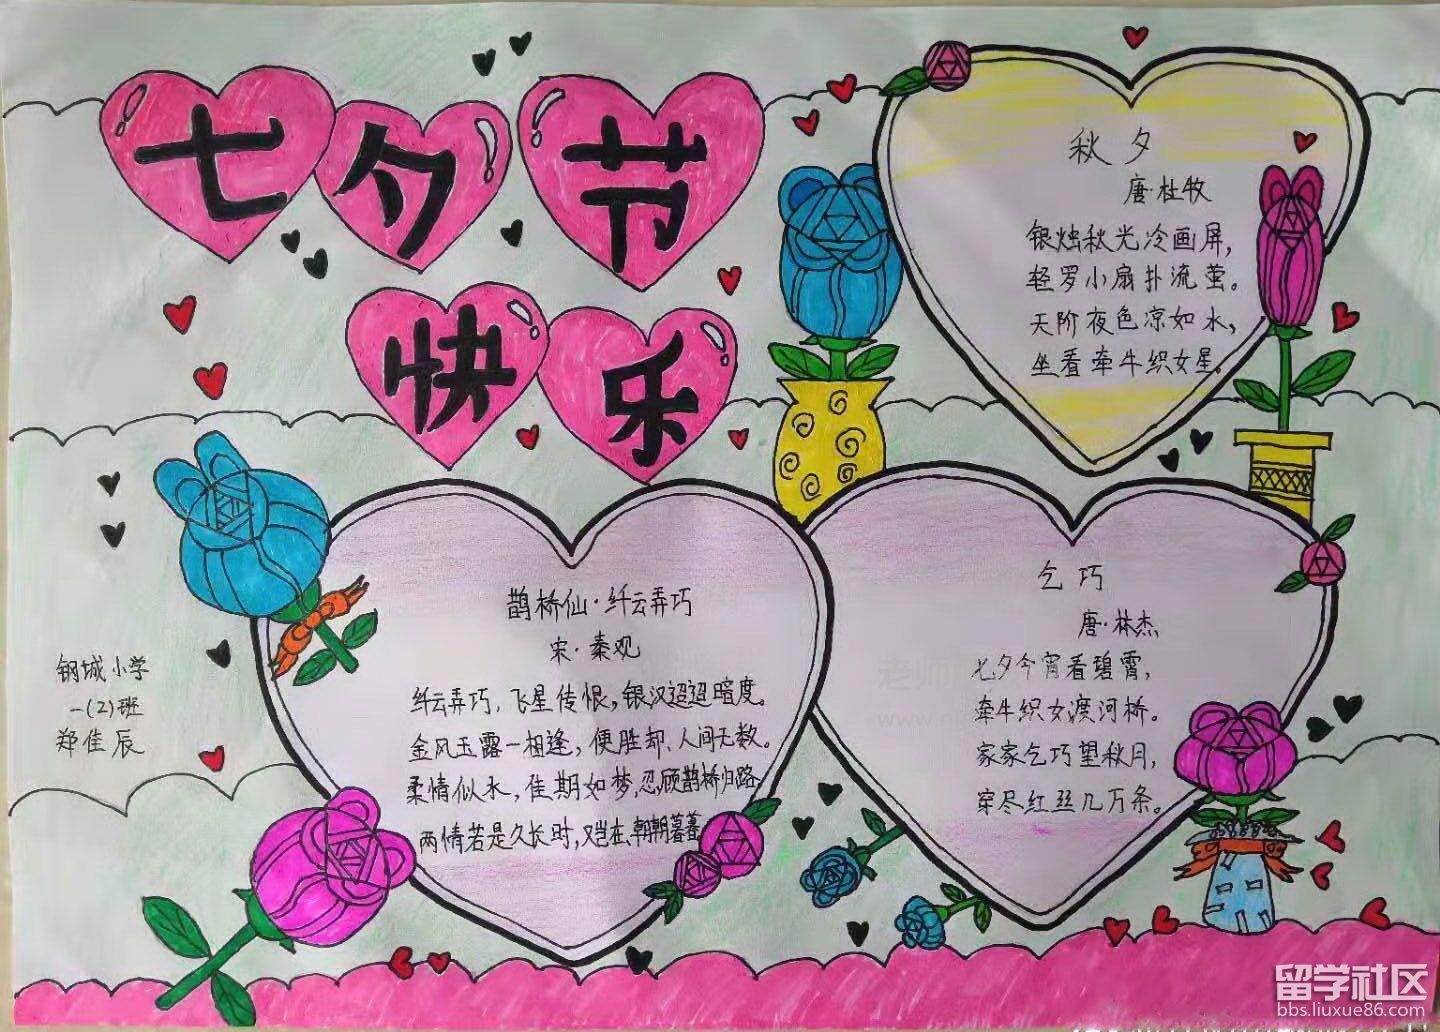 七夕节
快乐
秋夕
唐·杜牧
银烛秋光冷画屏,
轻罗小扇扑流萤。
天阶夜色凉如水,
坐看牵牛织女星。
鹊桥仙·纤云弄巧
宋·秦观
纤云弄巧,飞星传恨,银汉迢迢暗度。
金风玉露一相逢,便胜却、人间无数。
柔情似水,佳期如梦,忍顾鹊桥归路
两情若是久长时,又岂在、朝朝暮暮
乞巧
唐·林杰
七夕今宵看碧霄,
牵牛织女渡河桥。
家家乞巧望秋月,
穿尽红丝几万条。
钢城小学
一(2)班
郑佳辰
留学社区
bbs.liuxue86.com